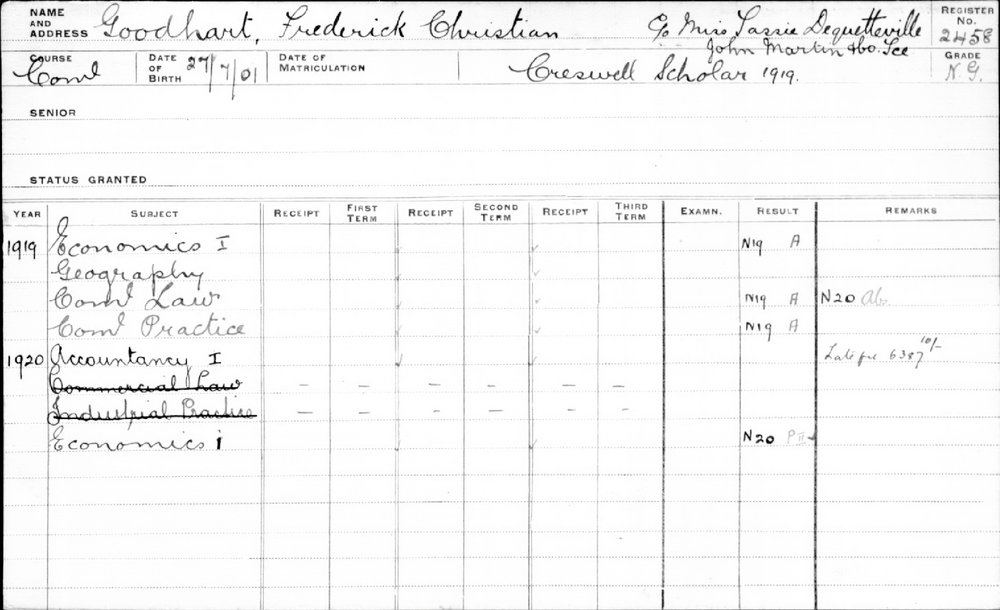 NAME AND ADDRESS Goodhart, Frederick Christian C/o Miss Tassie Dequetteville REGISTER No. 2458
John Martin &Co. Ltd
COURSE Coml DATE OF BIRTH 27/7/01 DATE OF MATRICULATION Creswell Scholar 1919. GRADE N.G.
SENIOR
STATUS GRANTED
YEAR SUBJECT RECEIPT FIRST TERM RECEIPT SECOND TERM RECEIPT THIRD TERM EXAMN. RESULT REMARKS
1919 Economics I ✓ ✓ N19 A
Geography ✓ ✓
Coml Law ✓ ✓ N19 A N20 Ab.
Coml Practice ✓ ✓ N19 A
1920 Accountancy I ✓ ✓ Late fee 6387 10/-
Commercial Law – – – – – –
Industrial Practice – – – – – –
Economics i ✓ ✓ N20 P II